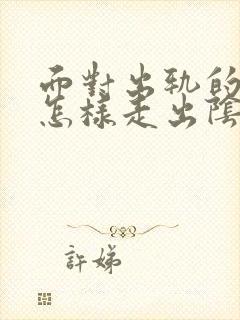 面對出軌的
怎樣走出陰
許娣